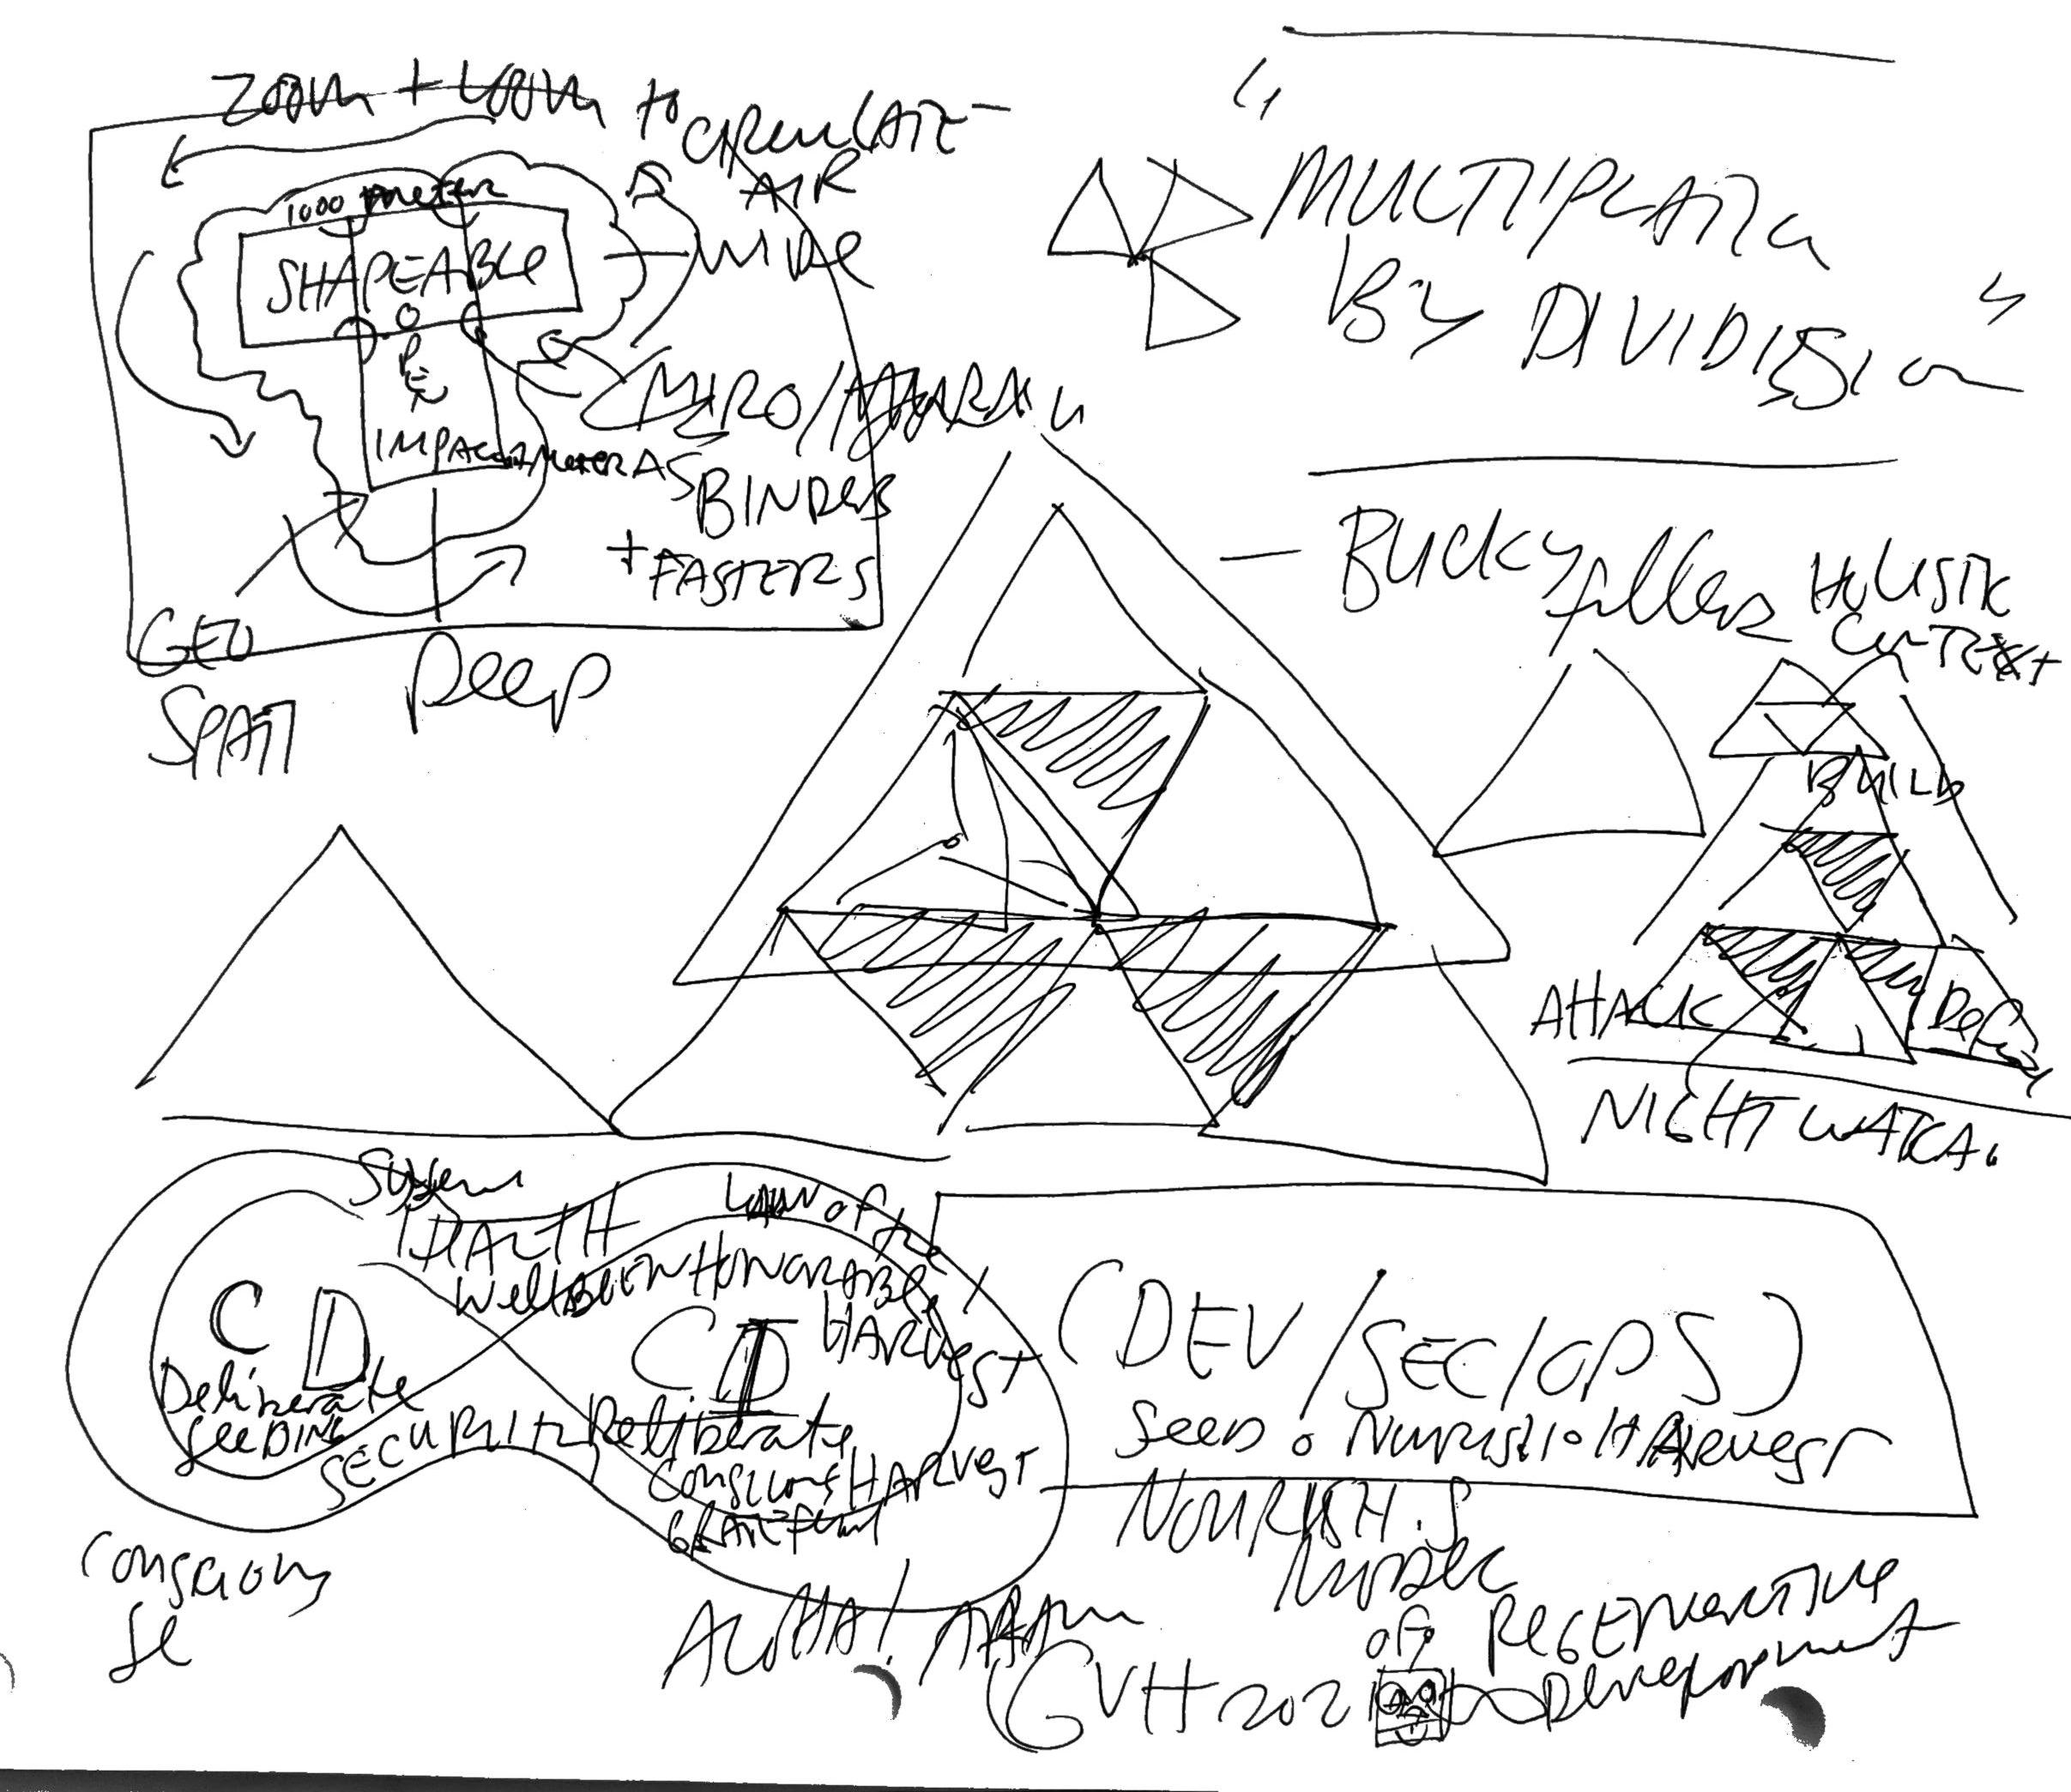 ZOOM + LOOM to
CIRCULATE
AIR
WIDE
1000 meter
SHAPEABLE
OPEN
IMPACT
MIRO/MURAL
AS
BINDERS
+ FASTERS
GEO
SPATI
Deep
"MULTIPLATIN
BY DIVIDISION"
— BUCKY fuller HOLISTIC
CONTEXT
BUILD
ATTACK
NIGHT WATCH.
System
HEALTH
Law of the
HONORABLE
HARVEST
C D
Deliberate
SEEDING
SECURITY
C D
Deliberate
Conscious HARVEST
GRATEFUL
Conscious
Se
(DEV/SEC/OPS)
Seed : Nourish : HARvest
NOURISH.S
MODEL
OF REGENERATIVE
Development
ALOHA!
GVH 2021